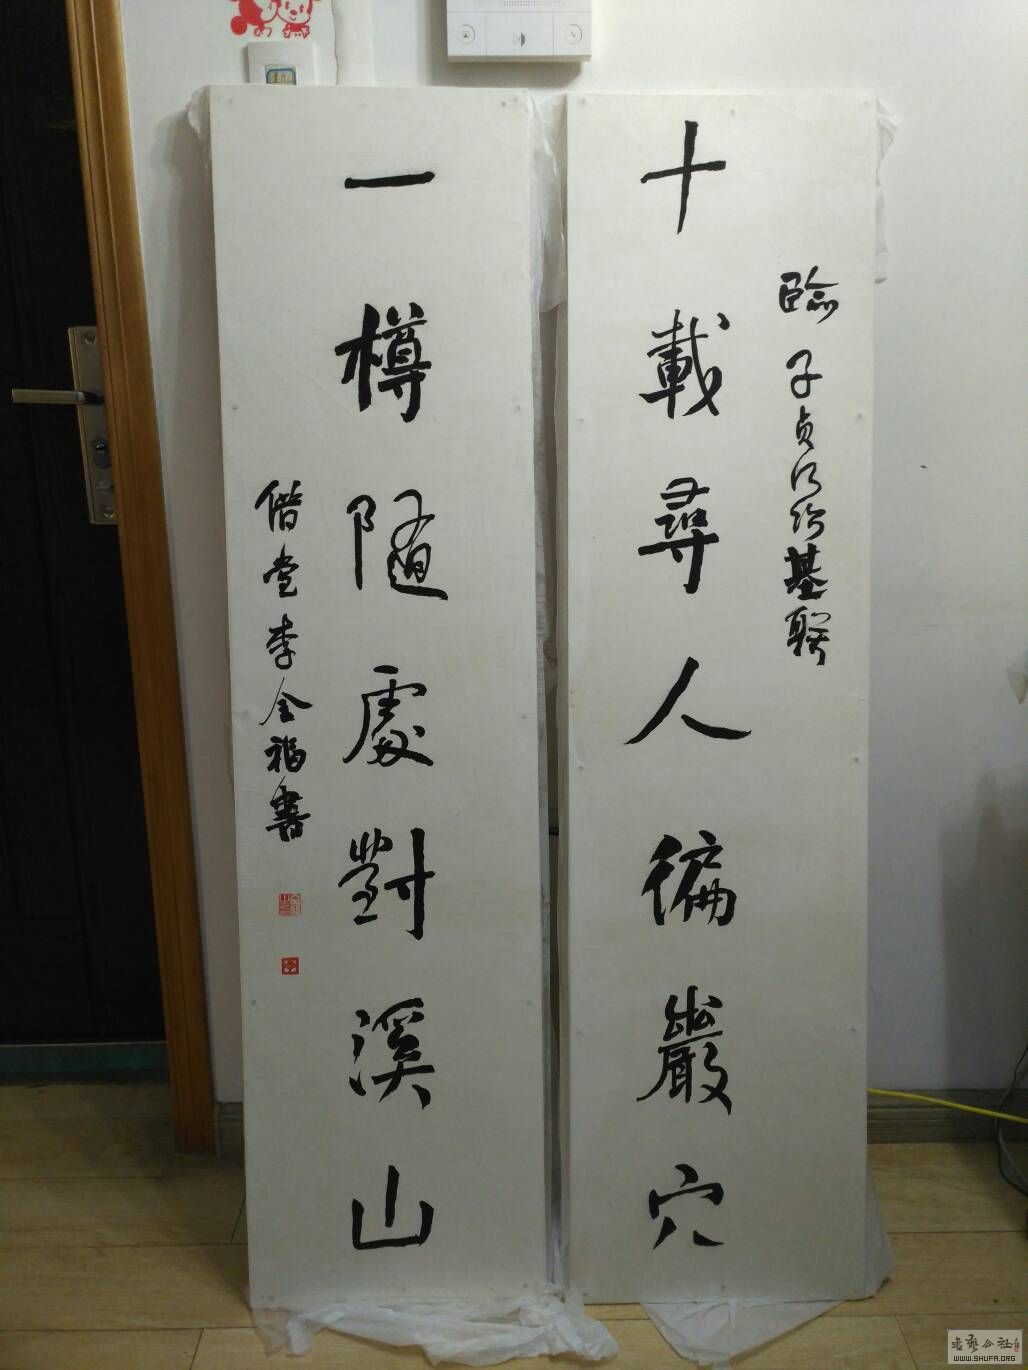 十載尋人徧巖穴
臨子貞何紹基聯
一樽隨處對溪山
偕堂李金福書
WWW.SHUFA.ORG